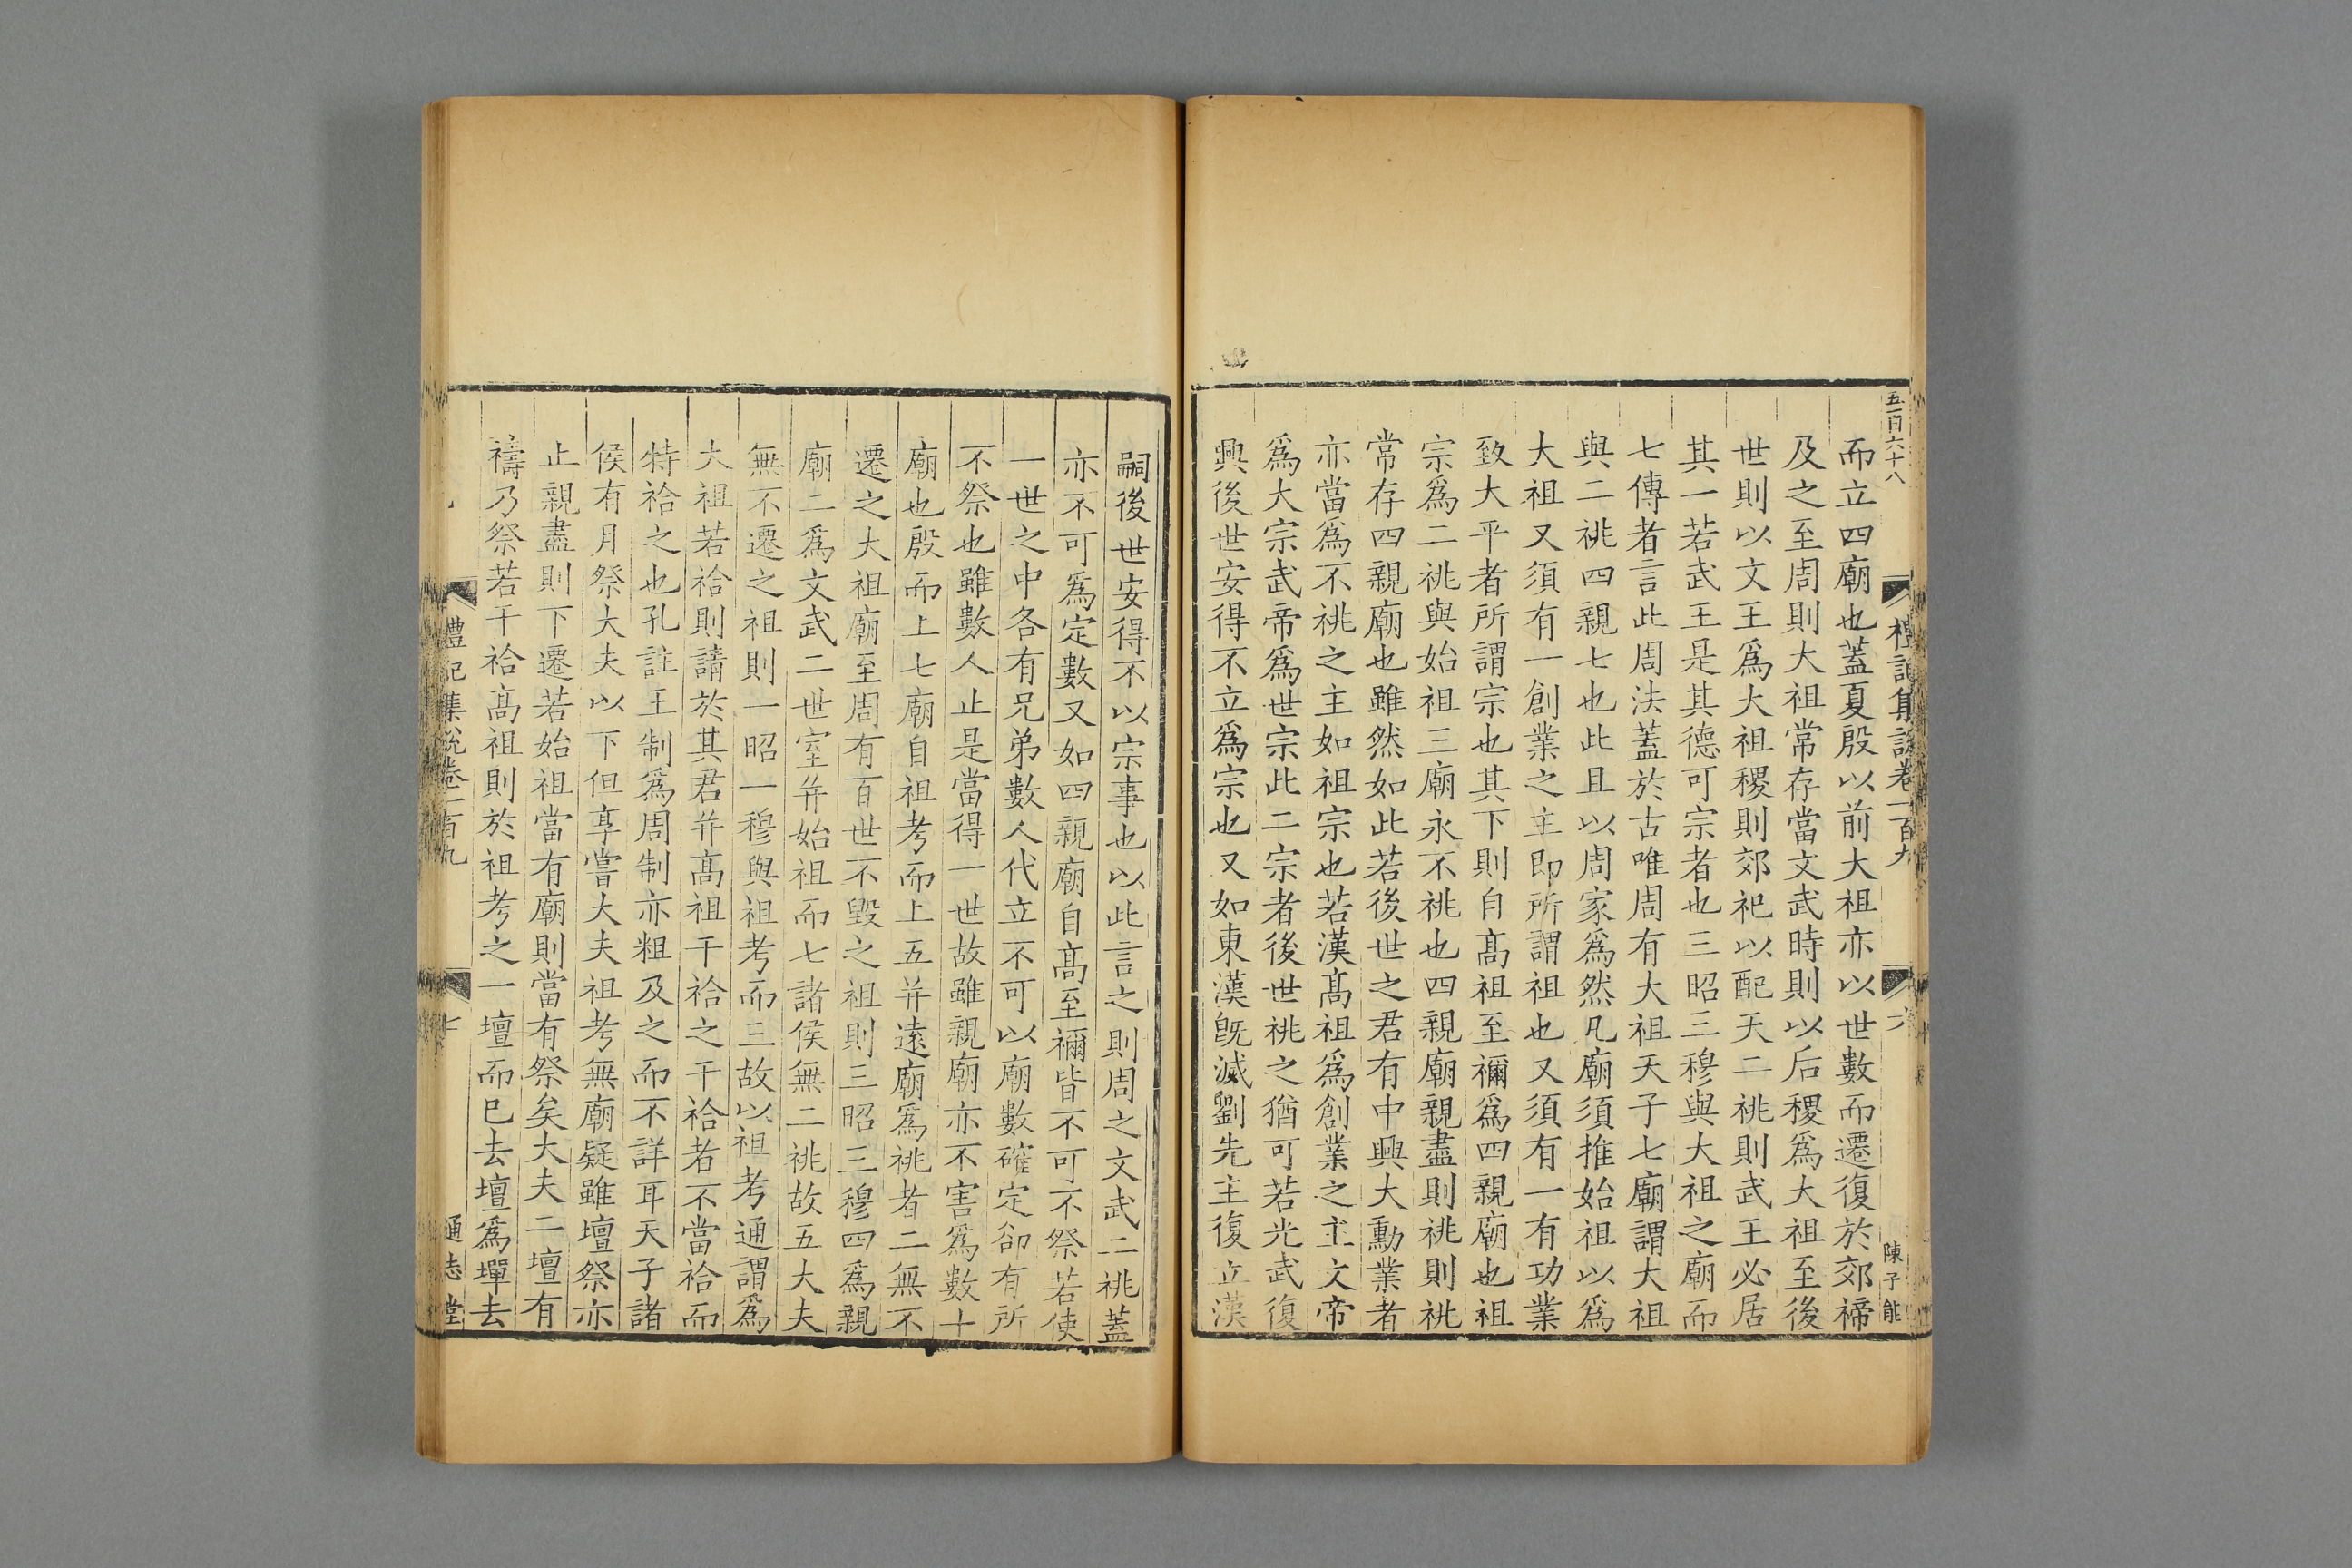 五百六十八
禮記集說卷一百九
六
陳子能
而立四廟也蓋夏殷以前大祖亦以世數而遷復於郊禘
及之至周則大祖常存當文武時則以后稷爲大祖至後
世則以文王爲大祖稷則郊祀以配天二祧則武王必居
其一若武王是其德可宗者也三昭三穆與大祖之廟而
七傳者言此周法蓋於古唯周有大祖天子七廟謂大祖
與二祧四親七也此且以周家爲然凡廟須推始祖以爲
大祖又須有一創業之主即所謂祖也又須有一有功業
致大平者所謂宗也其下則自髙祖至禰爲四親廟也祖
宗爲二祧與始祖三廟永不祧也四親廟親盡則祧則祧
常存四親廟也雖然如此若後世之君有中興大勳業者
亦當爲不祧之主如祖宗也若漢髙祖爲創業之主文帝
爲大宗武帝爲世宗此二宗者後世祧之猶可若光武復
興後世安得不立爲宗也又如東漢旣滅劉先主復立漢
嗣後世安得不以宗事也以此言之則周之文武二祧蓋
亦不可爲定數又如四親廟自髙至禰皆不可不祭若使
一世之中各有兄弟數人代立不可以廟數確定卻有所
不祭也雖數人止是當得一世故雖親廟亦不害爲數十
廟也殷而上七廟自祖考而上五并遠廟爲祧者二無不
遷之大祖廟至周有百世不毀之祖則三昭三穆四爲親
廟二爲文武二世室并始祖而七諸侯無二祧故五大夫
無不遷之祖則一昭一穆與祖考而三故以祖考通謂爲
大祖若祫則請於其君并髙祖干祫之干祫者不當祫而
特祫之也孔註王制爲周制亦粗及之而不詳耳天子諸
侯有月祭大夫以下但享嘗大夫祖考無廟疑雖壇祭亦
止親盡則下遷若始祖當有廟則當有祭矣大夫二壇有
禱乃祭若干祫髙祖則於祖考之一壇而已去壇爲墠去
禮記集說卷一百九
七
通志堂